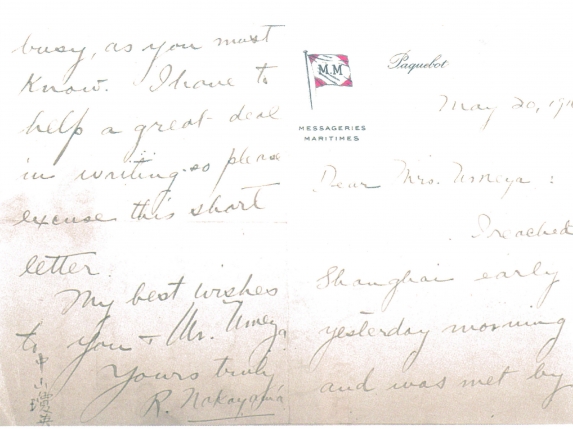 M.M
Paquebot
MESSAGERIES
MARITIMES
May 20, 191
Dear Mrs. Umeya :
I reached
Shanghai early
yesterday morning
and was met by
busy, as you must
know. I have to
help a great deal
in writing so please
excuse this short
letter.
My best wishes
to you + Mr. Umeya
Yours truly
R. Nakayama
中山瓊英